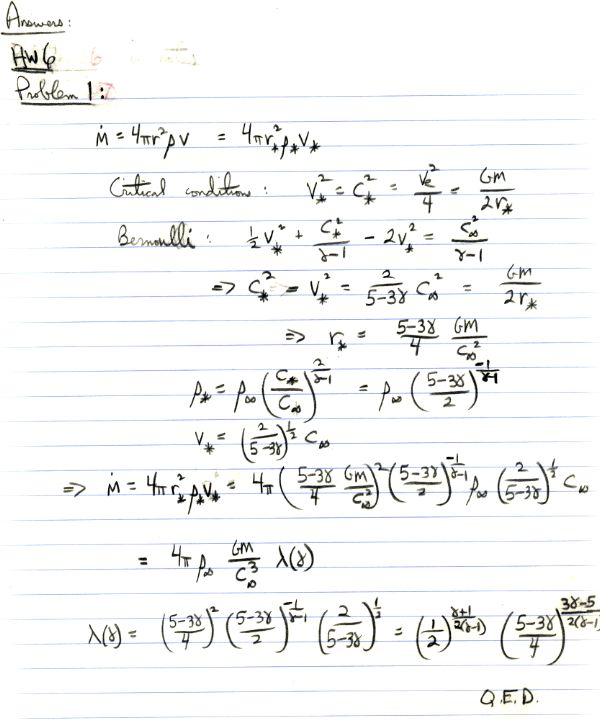 Answers:
HW6
Problem 1:
Ṁ = 4πr²ρv = 4πr*²ρ*v*
Critical conditions: V*² = C*² = Ve²/4 = GM/2r*
Bernoulli: ½V*² + C*²/(γ-1) - 2V*² = C∞²/(γ-1)
⇒ C*² = V*² = 2/(5-3γ) C∞² = GM/2r*
⇒ r* = (5-3γ)/4 GM/C∞²
ρ* = ρ∞ (C*/C∞)^(2/(γ-1)) = ρ∞ ((5-3γ)/2)^(-1/(γ-1))
V* = (2/(5-3γ))^(1/2) C∞
⇒ Ṁ = 4πr*²ρ*V* = 4π ((5-3γ)/4 GM/C∞²)² ((5-3γ)/2)^(-1/(γ-1)) ρ∞ (2/(5-3γ))^(1/2) C∞
= 4π ρ∞ GM/C∞³ λ(γ)
λ(γ) = ((5-3γ)/4)² ((5-3γ)/2)^(-1/(γ-1)) (2/(5-3γ))^(1/2) = (1/2)^((γ+1)/2(γ-1)) ((5-3γ)/4)^((3γ-5)/2(γ-1))
Q.E.D.